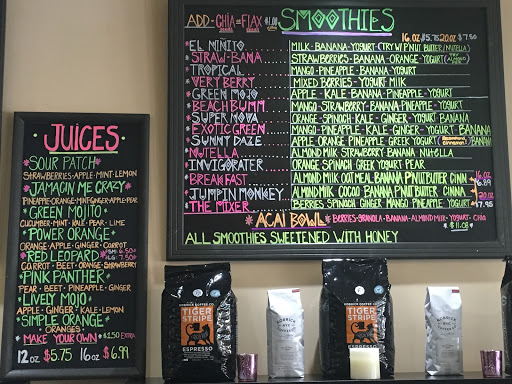 ADD - CHIA or FLAX $1.00 SMOOTHIES
16 oz $5.75 20 oz $7.50
EL MINITO MILK - BANANA - YOGURT (TRY W/ P'NUT BUTTER/NUTELLA)
STRAW-BANA STRAWBERRIES - BANANA - ORANGE - YOGURT
TROPICAL MANGO - PINEAPPLE - BANANA
VERY BERRY MIXED BERRIES - YOGURT - MILK
GREEN MOJO APPLE - KALE - BANANA - PINEAPPLE - YOGURT
BEACH BUMM MANGO - STRAWBERRY - BANANA - PINEAPPLE - YOGURT
SUPER NOVA ORANGE - SPINACH - KALE - GINGER - YOGURT BANANA
EXOTIC GREEN MANGO - PINEAPPLE - KALE - GINGER - YOGURT BANANA
SUNNY DAZE APPLE ORANGE PINEAPPLE GREEK YOGURT BANANA
NUTELLA ALMOND MILK STRAWBERRY BANANA NUTELLA
INVIGORATER ORANGE SPINACH GREEK YOGURT PEAR
BREAKFAST ALMOND MILK OATMEAL BANANA P'NUT BUTTER CINN 16 oz $6.89
JUMPIN MONKEY ALMOND MILK COCOA BANANA P'NUT BUTTER CINNA 20 oz
THE MIXER BERRIES SPINACH GINGER MANGO PINEAPPLE YOGURT $7.95
AÇAI BOWL BERRIES - GRANOLA - BANANA - ALMOND MILK - YOGURT - CHIA
$11.08
ALL SMOOTHIES SWEETENED WITH HONEY
JUICES
SOUR PATCH
STRAWBERRIES - APPLE - MINT - LEMON
JAMACIN ME CRAZY
PINEAPPLE - ORANGE - MINT - GINGER - APPLE - PEAR
GREEN MOJITO
CUCUMBER - MINT - KALE - PEAR - LIME
POWER ORANGE
ORANGE - APPLE - GINGER - CARROT
RED LEOPARD SM. 6.50 LG. 7.50
CARROT - BEET - ORANGE - STRAWBERRY
PINK PANTHER
PEAR - BEET - PINEAPPLE - GINGER
LIVELY MOJO
APPLE - GINGER - KALE - LEMON
SIMPLE ORANGE
ORANGES
MAKE YOUR OWN $1.50 EXTRA
12 oz $5.75 16 oz $6.99
TIGER STRIPE
ESPRESSO
TIGER STRIPE
ESPRESSO